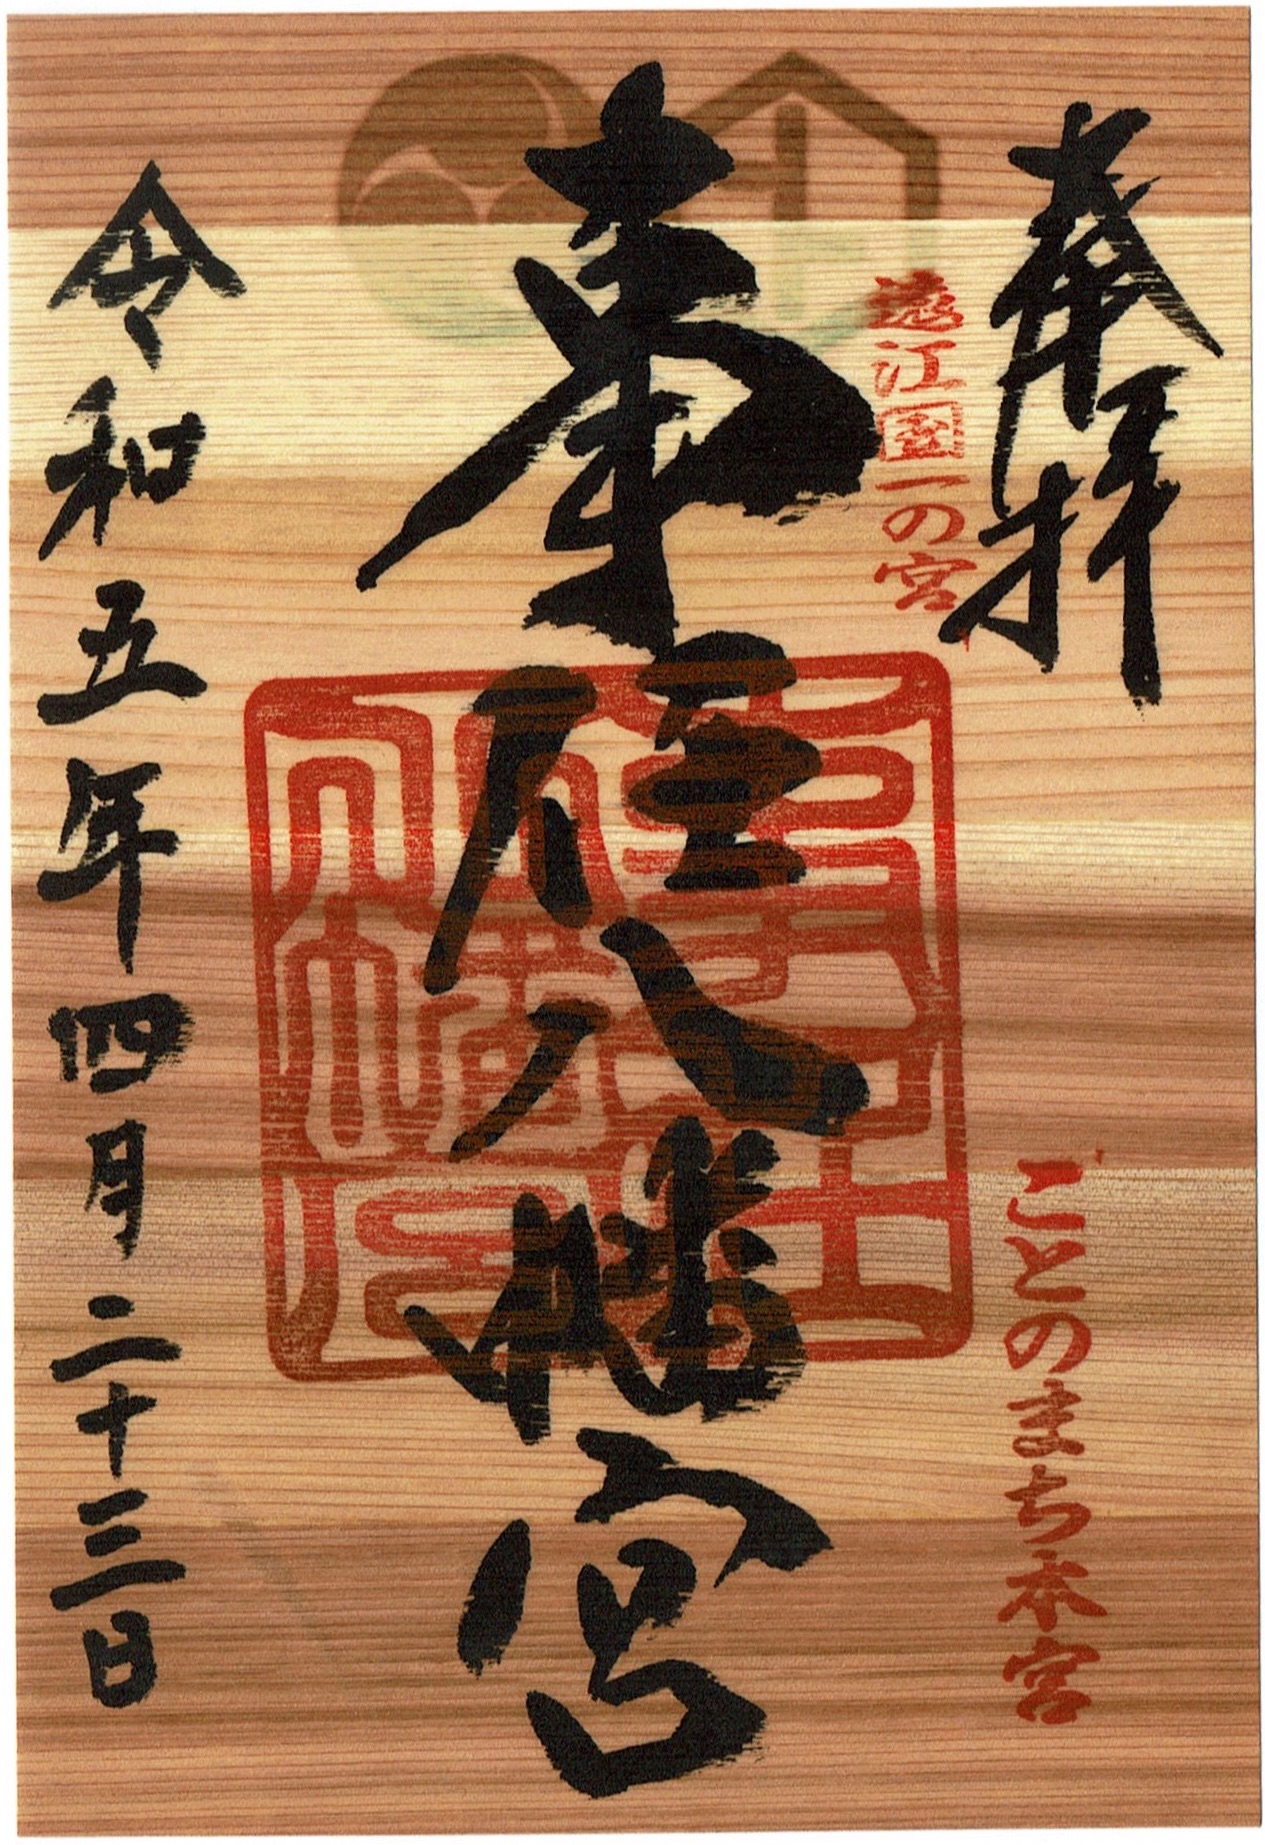 奉拝
遠江国一の宮
ことのまち本宮
事任八幡宮
令和五年四月二十三日